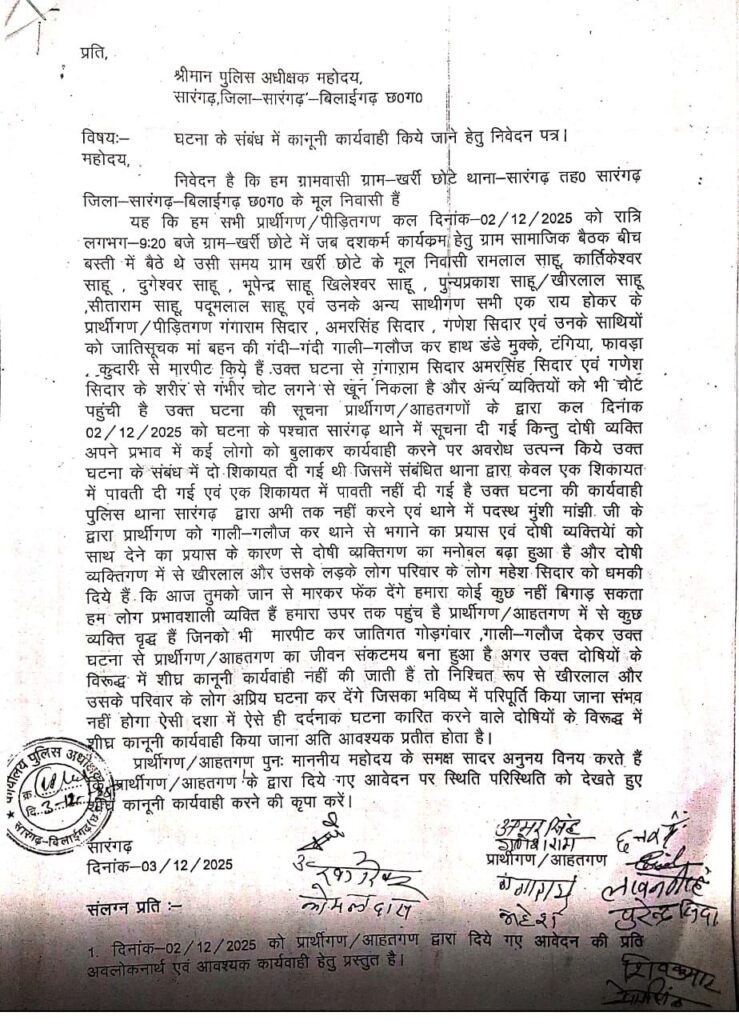 प्रति,
श्रीमान पुलिस अधीक्षक महोदय,
सारंगढ़,जिला–सारंगढ़–बिलाईगढ़ छ0ग0
विषयः– घटना के संबंध में कानूनी कार्यवाही किये जाने हेतु निवेदन पत्र।
महोदय,
निवेदन है कि हम ग्रामवासी ग्राम–खर्री छोटे थाना–सारंगढ़ तह0 सारंगढ़
जिला–सारंगढ़–बिलाईगढ़ छ0ग0 के मूल निवासी हैं
यह कि हम सभी प्रार्थीगण/पीड़ितगण कल दिनांक–02/12/2025 को रात्रि
लगभग–9:20 बजे ग्राम–खर्री छोटे में जब दशकर्म कार्यक्रम हेतु ग्राम सामाजिक बैठक बीच
बस्ती में बैठे थे उसी समय ग्राम खर्री छोटे के मूल निवासी रामलाल साहू, कार्तिकेश्वर
साहू , दुगेश्वर साहू , भूपेन्द्र साहू खिलेश्वर साहू , पुन्यप्रकाश साहू/खीरलाल साहू
,सीताराम साहू, पदूमलाल साहू एवं उनके अन्य साथीगण सभी एक राय होकर के
प्रार्थीगण/पीड़ितगण गंगाराम सिदार , अमरसिंह सिदार , गणेश सिदार एवं उनके साथियों
को जातिसूचक मां बहन की गंदी–गंदी गाली–गलौज कर हाथ डंडे मुक्के, टंगिया, फावड़ा
, कुदारी से मारपीट किये हैं उक्त घटना से गंगाराम सिदार अमरसिंह सिदार एवं गणेश
सिदार के शरीर से गंभीर चोट लगने से खून निकला है और अन्य व्यक्तियों को भी चोट
पहुंची है उक्त घटना की सूचना प्रार्थीगण/आहतगणों के द्वारा कल दिनांक
02/12/2025 को घटना के पश्चात सारंगढ़ थाने में सूचना दी गई किन्तु दोषी व्यक्ति
अपने प्रभाव में कई लोगो को बुलाकर कार्यवाही करने पर अवरोध उत्पन्न किये उक्त
घटना के संबंध में दो शिकायत दी गई थी जिसमें संबंधित थाना द्वारा केवल एक शिकायत
में पावती दी गई एवं एक शिकायत में पावती नहीं दी गई है उक्त घटना की कार्यवाही
पुलिस थाना सारंगढ़ द्वारा अभी तक नहीं करने एवं थाने में पदस्थ मुंशी मांझी जी के
द्वारा प्रार्थीगण को गाली–गलौज कर थाने से भगाने का प्रयास एवं दोषी व्यक्तियों को
साथ देने का प्रयास के कारण से दोषी व्यक्तिगण का मनोबल बढ़ा हुआ है और दोषी
व्यक्तिगण में से खीरलाल और उसके लड़के लोग परिवार के लोग महेश सिदार को धमकी
दिये हैं कि आज तुमको जान से मारकर फेंक देंगे हमारा कोई कुछ नहीं बिगाड़ सकता
हम लोग प्रभावशाली व्यक्ति हैं हमारा उपर तक पहुंच है प्रार्थीगण/आहतगण में से कुछ
व्यक्ति वृद्ध हैं जिनको भी मारपीट कर जातिगत गोड़गंवार ,गाली–गलौज देकर उक्त
घटना से प्रार्थीगण/आहतगण का जीवन संकटमय बना हुआ है अगर उक्त दोषियों के
विरूद्ध में शीघ्र कानूनी कार्यवाही नहीं की जाती हैं तो निश्चित रूप से खीरलाल और
उसके परिवार के लोग अप्रिय घटना कर देंगे जिसका भविष्य में परिपूर्ति किया जाना संभव
नहीं होगा ऐसी दशा में ऐसे ही दर्दनाक घटना कारित करने वाले दोषियों के विरूद्ध में
शीघ्र कानूनी कार्यवाही किया जाना अति आवश्यक प्रतीत होता है।
प्रार्थीगण/आहतगण पुनः माननीय महोदय के समक्ष सादर अनुनय विनय करते हैं
कि प्रार्थीगण/आहतगण के द्वारा दिये गए आवेदन पर स्थिति परिस्थिति को देखते हुए
शीघ्र कानूनी कार्यवाही करने की कृपा करें।
कार्यालय पुलिस अधीक्षक
क्र.
दि. 3-12-
सारंगढ़-बिलाईगढ़
सारंगढ़
दिनांक–03/12/2025
अमरसिंह
गणेशराम
प्रार्थीगण/आहतगण
गंगाराम
महेश
कोमलदास
शिवकुमार
संलग्न प्रति :–
1. दिनांक–02/12/2025 को प्रार्थीगण/आहतगण द्वारा दिये गए आवेदन की प्रति
अवलोकनार्थ एवं आवश्यक कार्यवाही हेतु प्रस्तुत है।